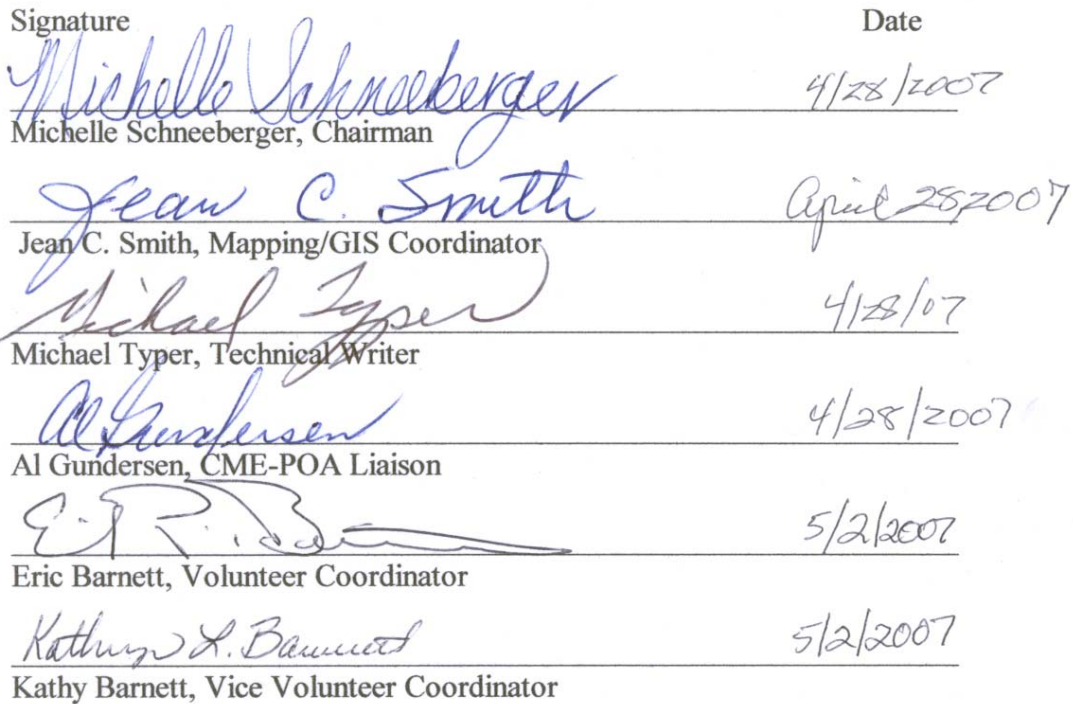 Signature Date
Michelle Schneeberger 4/28/2007
Michelle Schneeberger, Chairman
Jean C. Smith April 28 2007
Jean C. Smith, Mapping/GIS Coordinator
Michael Typer 4/28/07
Michael Typer, Technical Writer
Al Gundersen 4/28/2007
Al Gundersen, CME-POA Liaison
Eric R. Barnett 5/2/2007
Eric Barnett, Volunteer Coordinator
Kathryn L. Barnett 5/2/2007
Kathy Barnett, Vice Volunteer Coordinator